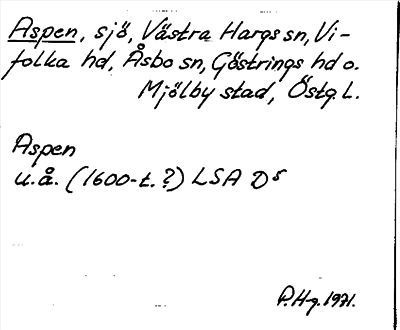 Aspen, sjö, Västra Hargs sn, Vi-
folka hd, Åsbo sn, Göstrings hd o.
Mjölby stad, Östg. L.
Aspen
u.å. (1600-t.?) LSA D⁵
P. H-g. 1971.